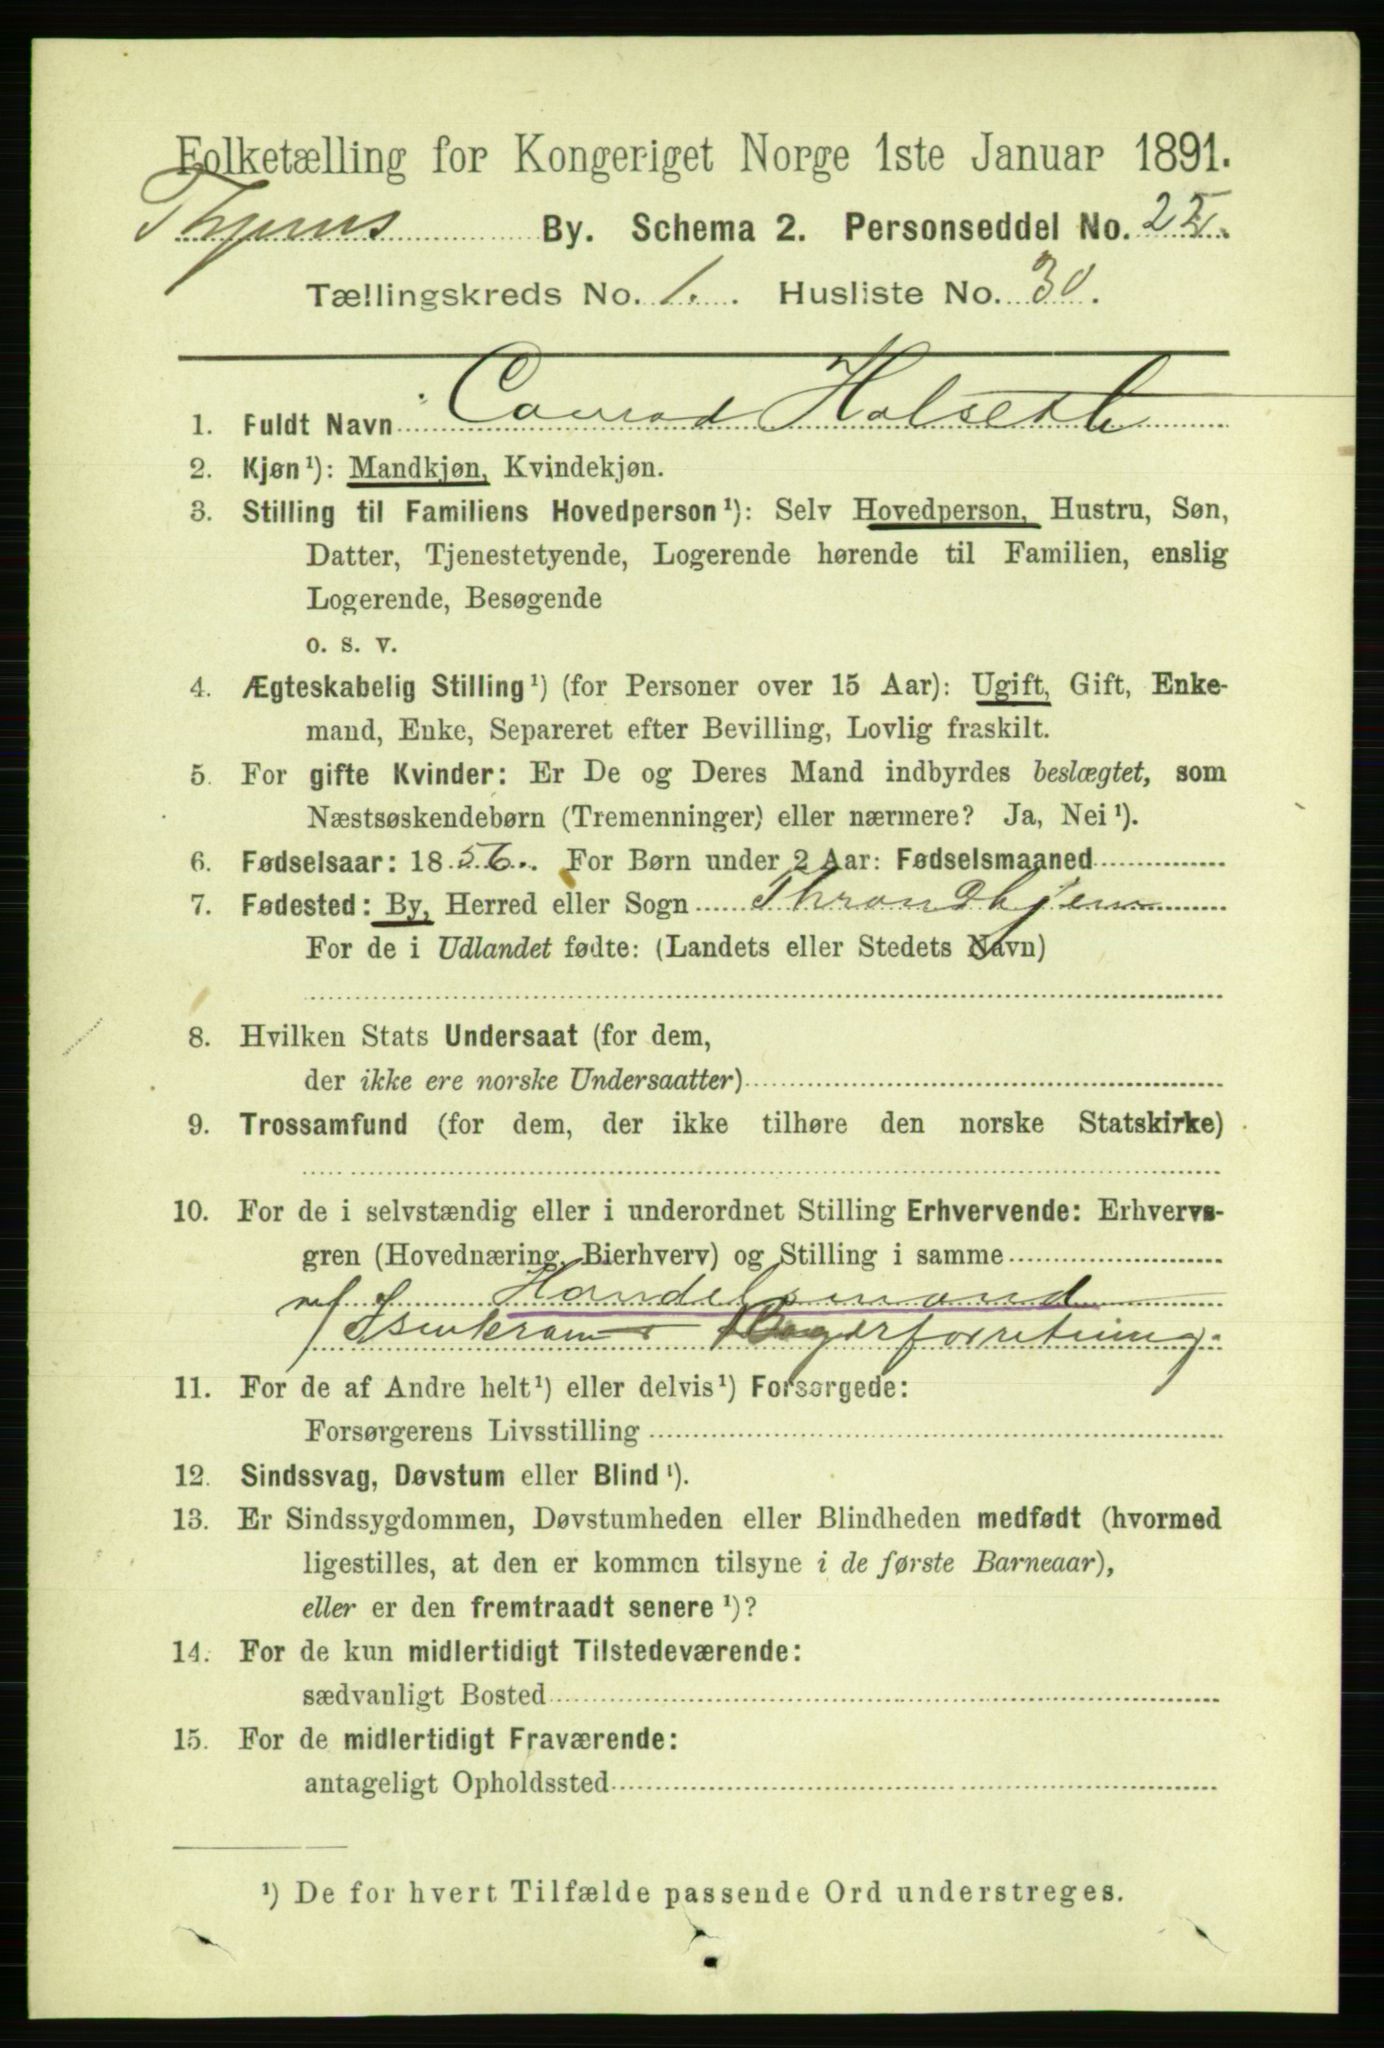 Folketælling for Kongeriget Norge 1ste Januar 1891.
By. Schema 2. Personseddel No. 25.
Tællingskreds No. 1. Husliste No. 30.
1. Fuldt Navn Conrad Halseth
2. Kjøn¹): Mandkjøn, Kvindekjøn.
3. Stilling til Familiens Hovedperson¹): Selv Hovedperson, Hustru, Søn,
Datter, Tjenestetyende, Logerende hørende til Familien, enslig
Logerende, Besøgende
o. s. v.
4. Ægteskabelig Stilling¹) (for Personer over 15 Aar): Ugift, Gift, Enke-
mand, Enke, Separeret efter Bevilling, Lovlig fraskilt.
5. For gifte Kvinder: Er De og Deres Mand indbyrdes beslægtet, som
Næstsøskendebørn (Tremenninger) eller nærmere? Ja, Nei¹).
6. Fødselsaar: 1856. For Børn under 2 Aar: Fødselsmaaned
7. Fødested: By, Herred eller Sogn Throndhjem
For de i Udlandet fødte: (Landets eller Stedets Navn)
8. Hvilken Stats Undersaat (for dem,
der ikke ere norske Undersaatter)
9. Trossamfund (for dem, der ikke tilhøre den norske Statskirke)
10. For de i selvstændig eller i underordnet Stilling Erhvervende: Erhvervs-
gren (Hovednæring, Bierhverv) og Stilling i samme
Handelsmand
Isenkram
11. For de af Andre helt¹) eller delvis¹) Forsørgede:
Forsørgerens Livsstilling
12. Sindssvag, Døvstum eller Blind¹).
13. Er Sindssygdommen, Døvstumheden eller Blindheden medfødt (hvormed
ligestilles, at den er kommen tilsyne i de første Barneaar),
eller er den fremtraadt senere¹)?
14. For de kun midlertidigt Tilstedeværende:
sædvanligt Bosted
15. For de midlertidigt Fraværende:
antageligt Opholdssted
¹) De for hvert Tilfælde passende Ord understreges.